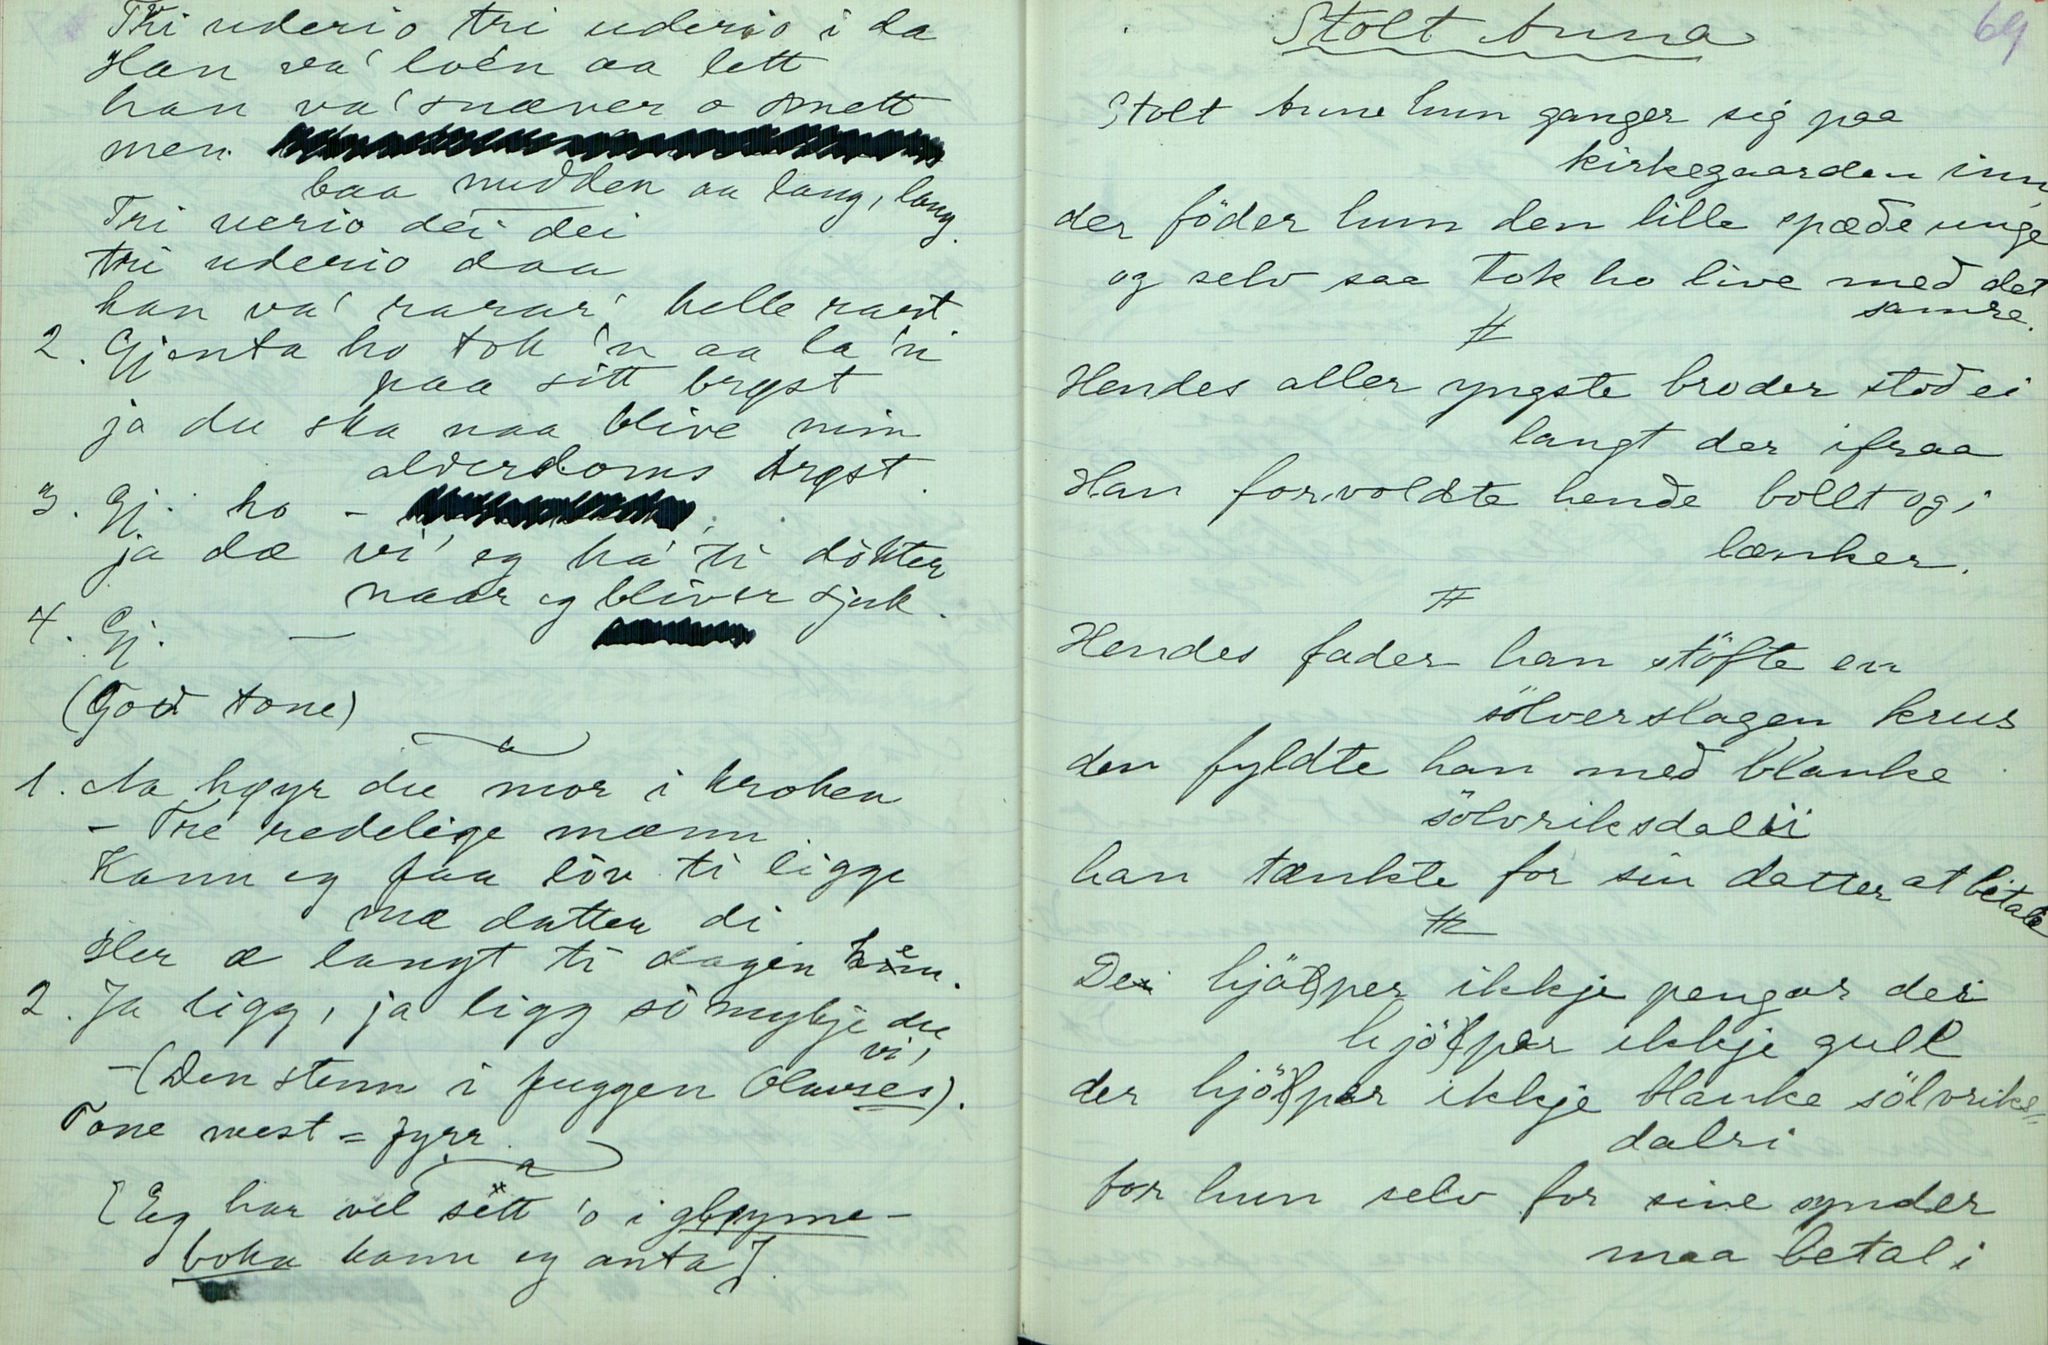 Tri uderio tri uderio i da
Han va' loén aa lett
han va' snæver o smett
men
baa nudden aa lang, lang.
Tri uerio dei dei
tri uderio daa
han va' rarar' helle rart
2. Gjenta ho tok 'n aa la 'n
paa sitt brøst
ja du ska naa blive min
alderdoms trøst.
3. Gj. ho –
ja dæ vi' eg ha' ti dökter
naar eg bliver sjuk.
4. Gj. —
(God tone)
1. Aa høyr du mor i kroken
– Tre redelige mænn.
Kann eg faa löv ti ligge
mæ datter di
Her æ langt ti dagen hen.
2. Ja ligg, ja ligg so mykje du
vi,
– (Den stenn i fuggen Olavses).
Tone mest = fyrr.
[Eg har vel sett 'o i gløyme-
boka kann eg anta].
69
Stolt Anna
Stolt Anne hun ganger sig paa
kirkegaarden inn,
der föder hun den lille spæde unge
og selv saa tok ho live med det
samre.
#
Hendes aller yngste broder stod ei
langt der ifraa
Han forvoldte hende bollt og i
lænker.
#
Hendes fader han stöfte en
sölverslagen krus
den fyldte han med blanke
sölvriksdali
han tænkte for sin datter at betale
#
Dei hjölper ikkje pengar dei
hjölper ikkje gull
der hjölper ikkje blanke sölvriks=
dalri
for hun selv for sine synder
maa betali